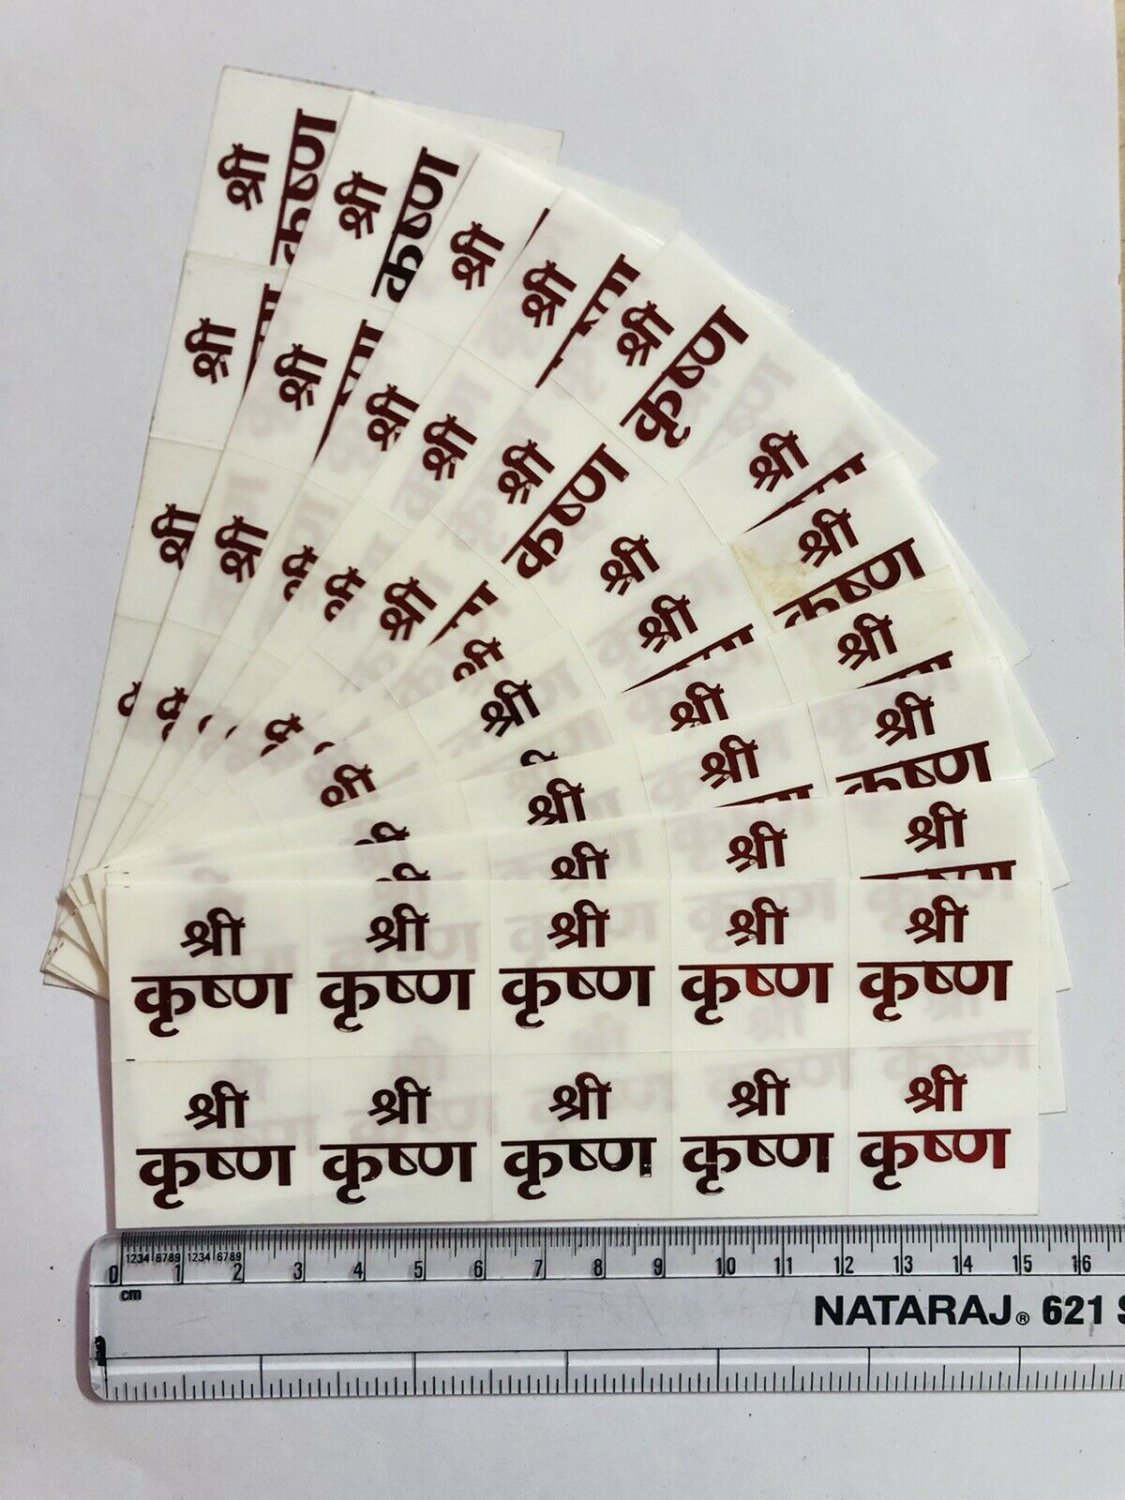 श्री
कृष्ण
श्री
कृष्ण
श्री
श्री
श्री
कृष्ण
श्री
श्री
श्री
श्री
श्री
कृष्ण
श्री
श्री
कृष्ण
श्री
श्री
कृष्ण
श्री
श्री
श्री
श्री
श्री
श्री
श्री
श्री
श्री
श्री
श्री
श्री श्री श्री श्री श्री
कृष्ण कृष्ण कृष्ण कृष्ण कृष्ण
श्री श्री श्री श्री श्री
कृष्ण कृष्ण कृष्ण कृष्ण कृष्ण
1234 6789 1234 6789
0 1 2 3 4 5 6 7 8 9 10 11 12 13 14 15 16
cm
NATARAJ® 621